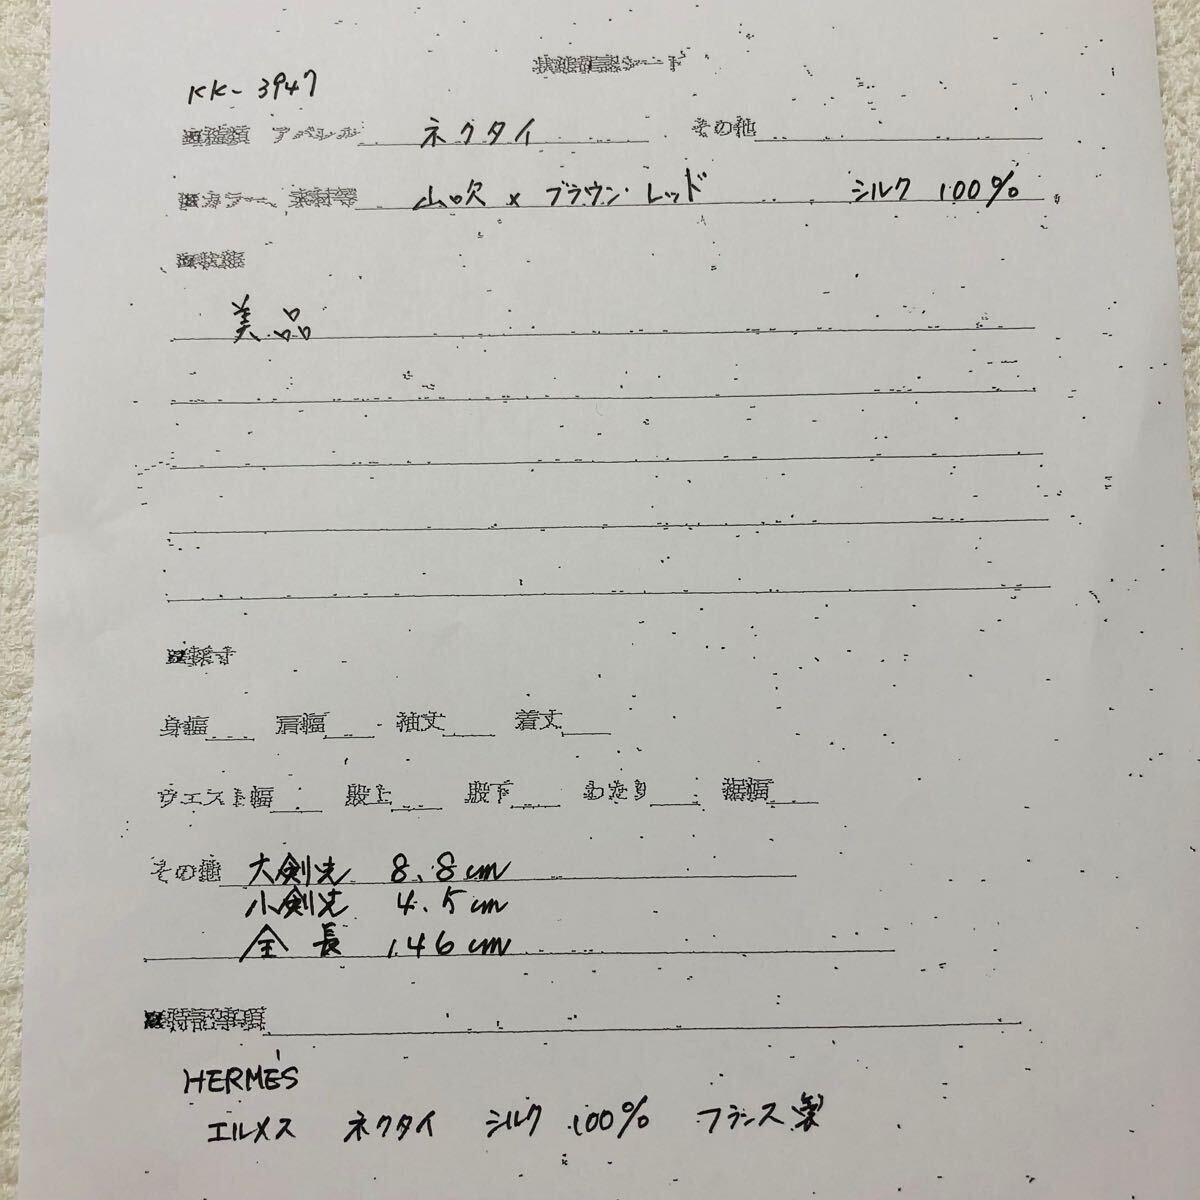 状態確認シート
KK-3947
※種類 アパレル ネクタイ その他
※カラー、素材等 山吹 x ブラウン・レッド シルク 100%
※状態
美品
※採寸
身幅 肩幅 袖丈 着丈
ウエスト幅 股上 股下 わたり 裾幅
その他 大剣先 8.8cm
小剣先 4.5cm
全長 146cm
※特記事項
HERMÈS
エルメス ネクタイ シルク 100% フランス製